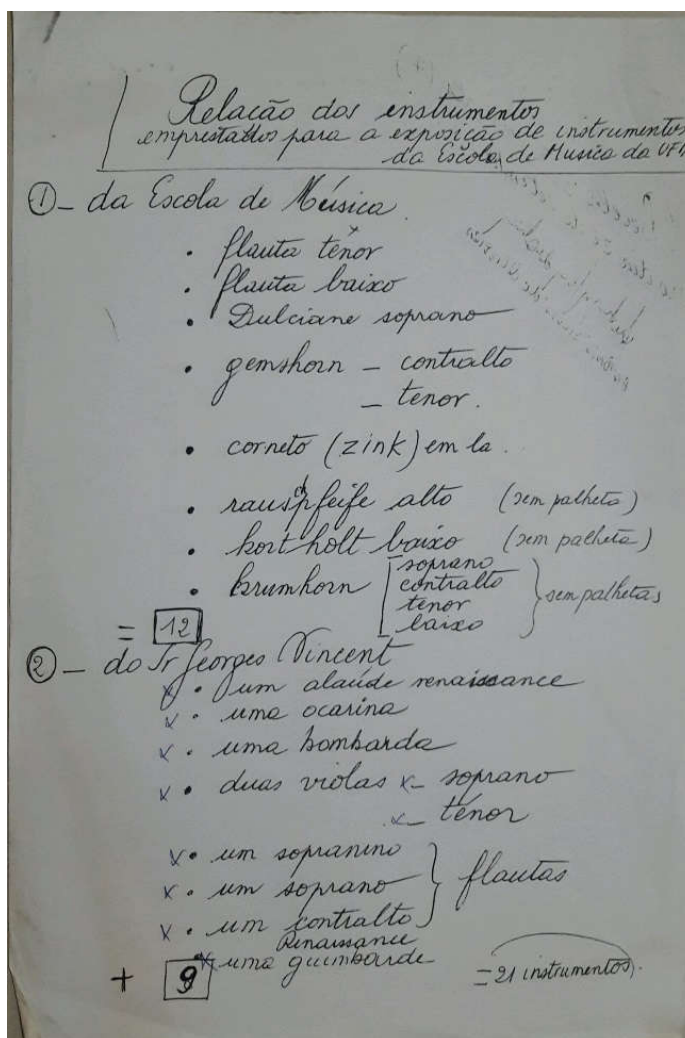 Relação dos instrumentos
emprestados para a exposição de instrumentos
da Escola de Musica da
① - da Escola de Música.
• flauta tenor
• flauta baixo
• Dulciane soprano
• gemshorn - contralto
- tenor.
• corneto (zink) em la.
• rauschpfeife alto (sem palheta)
• kort holt baixo (sem palheta)
• krumhorn [ soprano
contralto
tenor
baixo } sem palhetas
= 12
② - do Sr Georges Vincent
x • um alaúde renaissance
x • uma ocarina
x • uma bombarda
x • duas violas x - soprano
x - tenor
x • um sopranino
x • um soprano } flautas
x • um contralto
Renaissance
x uma guimbarde
+ 9 = 21 instrumentos.